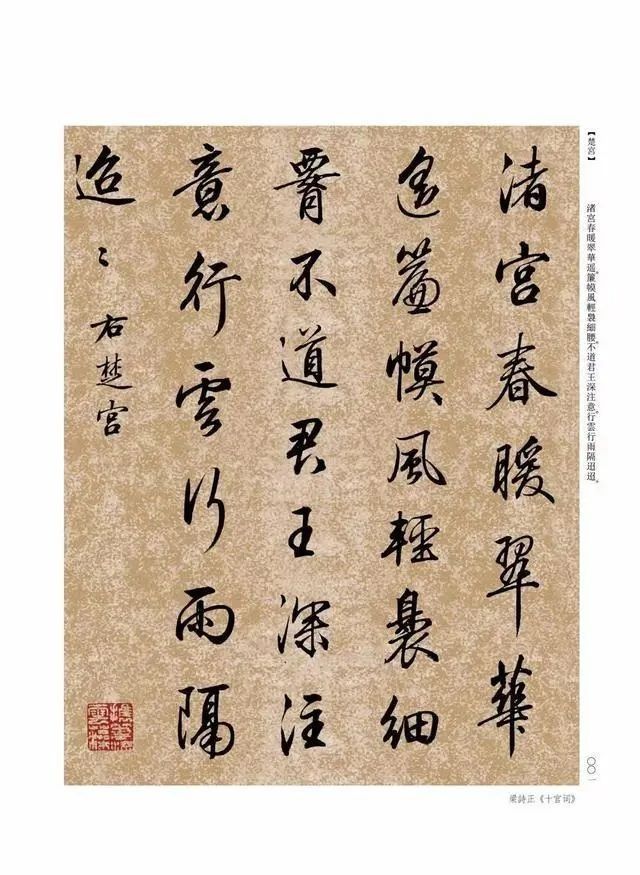 【楚宮】
渚宮春暖翠華遥。簾幙風輕裊細腰。不道君王深注意。行雲行雨隔迢迢。
渚宮春暖翠華
遥簾幙風輕裊細
腰不道君王深注
意行雲行雨隔
迢〻右楚宮
〇〇一
梁詩正《十官词》